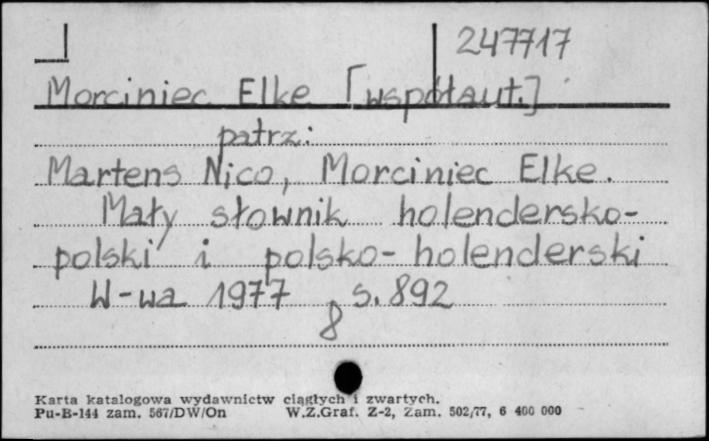 247717
Morciniec Elke [współaut.]
patrz:
Martens Nico, Morciniec Elke.
Mały słownik holendersko-
polski i polsko-holenderski
W-wa 1977 s. 892
8
Karta katalogowa wydawnictw ciągłych i zwartych.
Pu-B-144 zam. 567/DW/On W.Z.Graf. Z-2, Zam. 502/77, 6 400 000